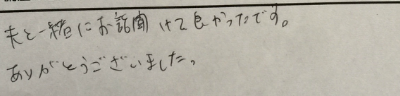 夫と一緒にお話聞けて良かったです。
ありがとうございました。